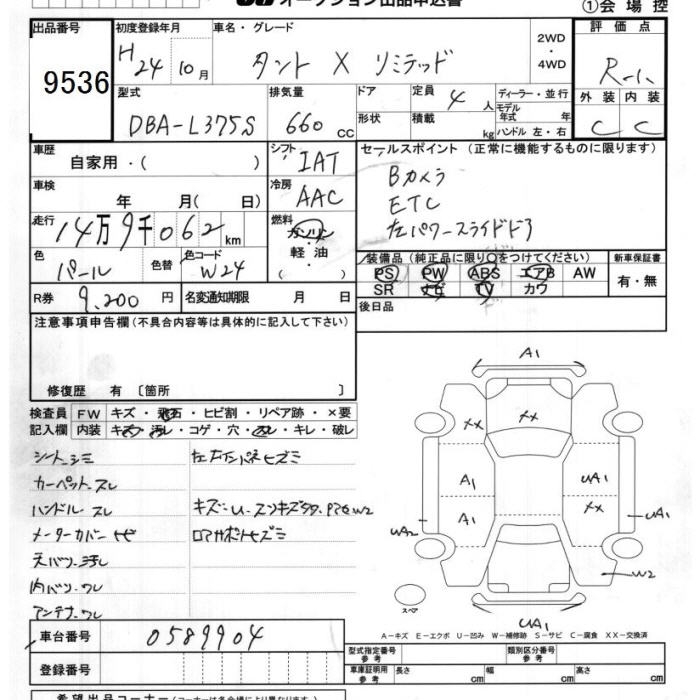 オークション出品申込書
①会場控
出品番号
9536
初度登録年月
H 24 10月
車名・グレード
タント X リミテッド
2WD
・
4WD
評価点
R-1
外装 内装
C C
型式
DBA-L375S
排気量
660 cc
ドア
形状
定員 4 人
積載 kg
ディーラー・並行
モデル年式 年
ハンドル 左・右
車歴
自家用・( )
シフト
IAT
冷房
AAC
車検
年 月( 日)
走行
14万9千062 km
燃料
ガソリン
軽油
( )
色
パール
色替
色コード
W24
R券 9,200円
名変通知期限 月 日
セールスポイント (正常に機能するものに限ります)
Bカメラ
ETC
左パワースライドドア
装備品 (純正品に限り○をつけてください)
新車保証書
PS PW ABS エアB AW
SR ナビ TV カワ
有・無
後日品
注意事項申告欄(不具合内容等は具体的に記入して下さい)
修復歴 有 〔箇所 〕
検査員 FW キズ・飛石・ヒビ割・リペア跡・×要
記入欄 内装 キズ・汚れ・コゲ・穴・スレ・キレ・破レ
シートシミ
カーペットスレ
ハンドルスレ
メーターカバー
天バリ汚レ
内バリワレ
アンテナワレ
左右インパネヒズミ
ロアサポトヒズミ
A1
XX XX
A1 UA1
A1 XX
UA2 UA1
W2
UA1
スペア
A-キズ E-エクボ U-凹み W-補修跡 S-サビ C-腐食 XX-交換済
車台番号 0589904
登録番号
型式指定番号 参考
類別区分番号 参考
車庫証明用 参考
長さ cm
幅 cm
高さ cm
希望出品コーナー